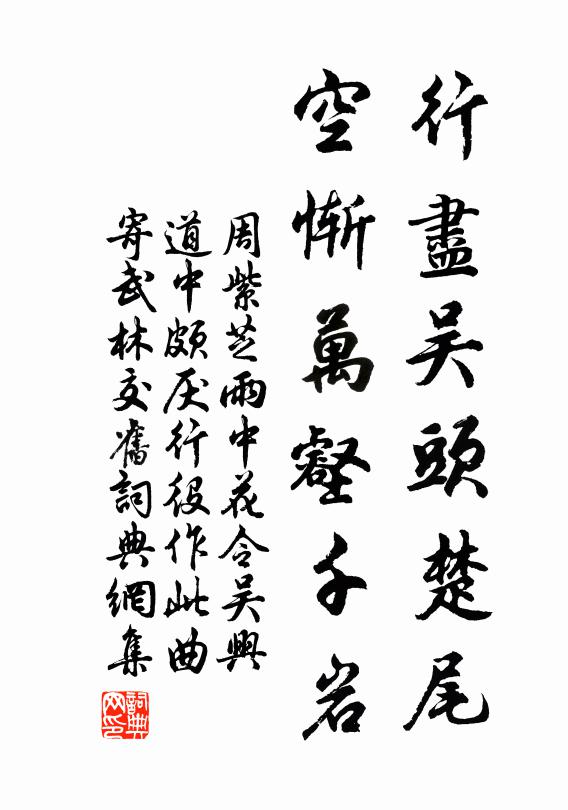 行盡吴頭楚尾
空慚萬壑千岩
周紫芝雨中花令吴興
道中頗厌行役作此曲
寄武林交舊詞典網集
詞典网印